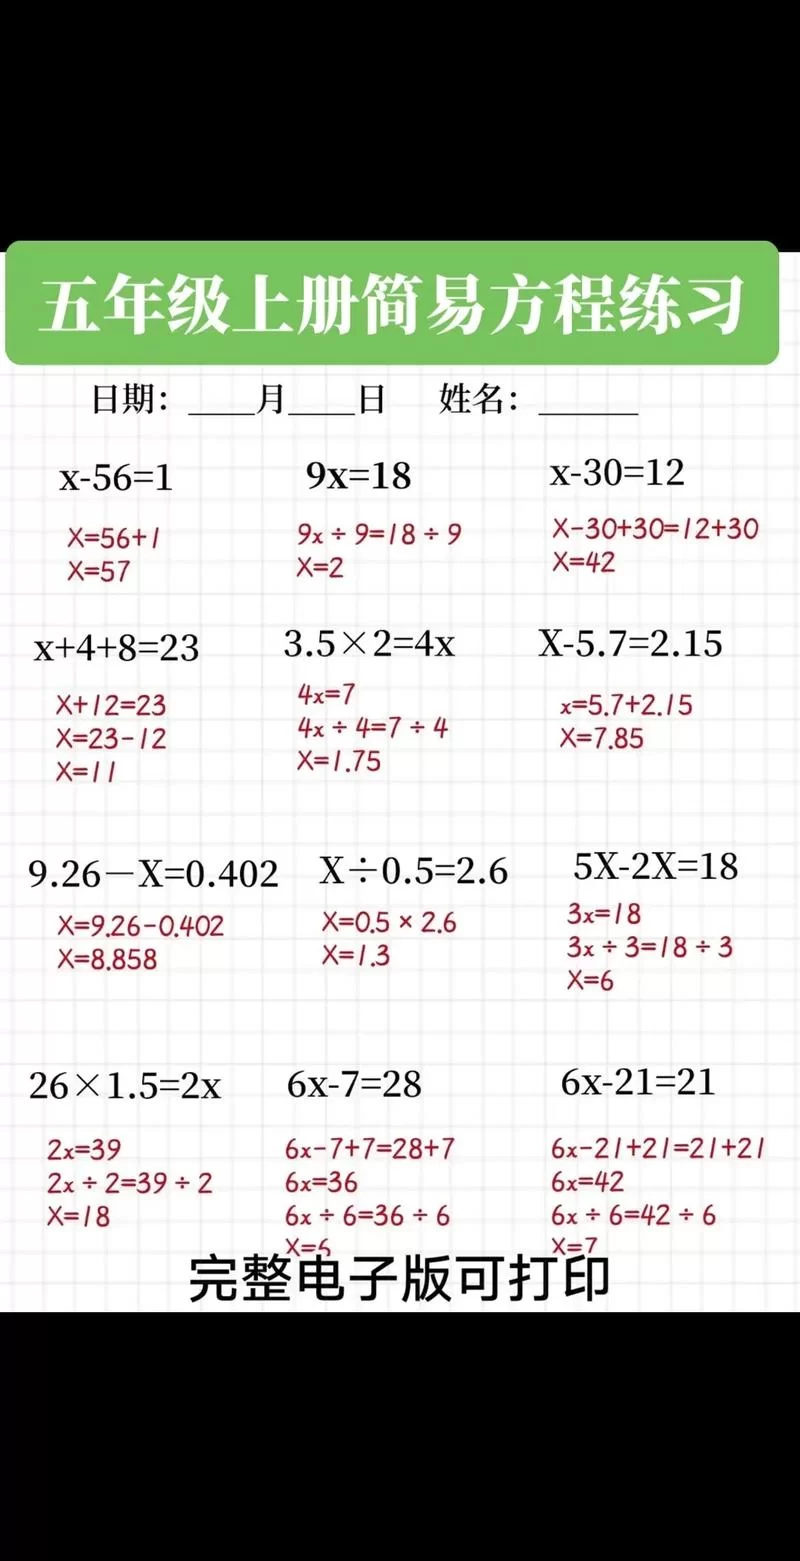 五年级上册简易方程练习
日期：____月____日 姓名：______
x-56=1 9x=18 x-30=12
X=56+1 9x÷9=18÷9 X-30+30=12+30
X=57 X=2 X=42
x+4+8=23 3.5×2=4x X-5.7=2.15
X+12=23 4x=7 x=5.7+2.15
X=23-12 4x÷4=7÷4 X=7.85
X=11 X=1.75
9.26－X=0.402 X÷0.5=2.6 5X-2X=18
X=9.26-0.402 X=0.5×2.6 3x=18
X=8.858 X=1.3 3x÷3=18÷3
X=6
26×1.5=2x 6x-7=28 6x-21=21
2x=39 6x-7+7=28+7 6x-21+21=21+21
2x÷2=39÷2 6x=36 6x=42
X=18 6x÷6=36÷6 6x÷6=42÷6
X=6 X=7
完整电子版可打印